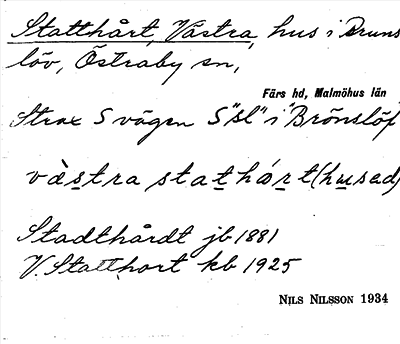 Statthårt, Västra, hus i Bruns
löv, Östraby sn,
Färs hd, Malmöhus län
Strax S vägen S "sl" i "Brönslöf
västra stathårt (husad)
Stadthårdt jb 1881
V. Statthort kb 1925
NILS NILSSON 1934